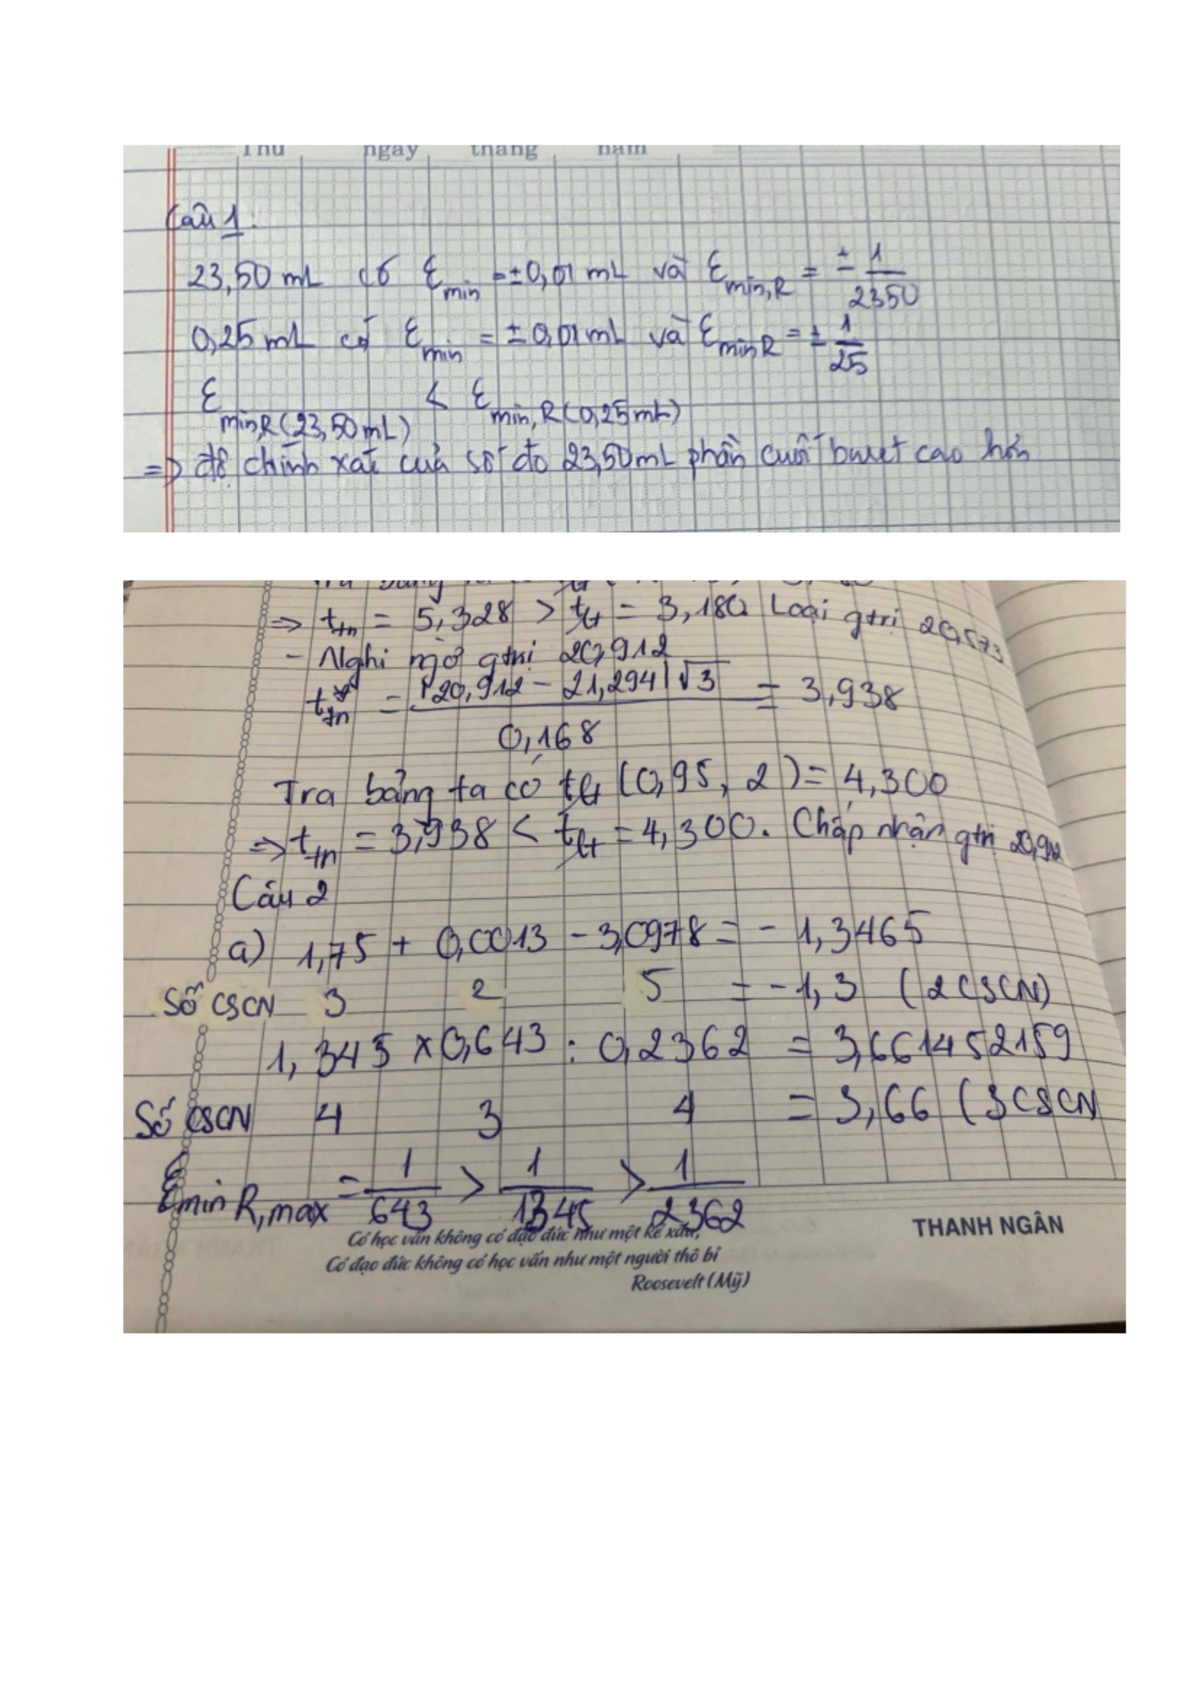 Thứ ngày tháng năm
Câu 1:
23,50 mL có ε min = ±0,01 mL và ε min,R = ± 1/2350
0,25 mL có ε min = ±0,01 mL và ε min R = ± 1/25
ε min,R (23,50 mL) < ε min,R (0,25 mL)
=> độ chính xác của số đo 23,50 mL phần cuối buret cao hơn
=> t tn = 5,328 > t lt = 3,180 Loại gtrị 20,573
- Nghi ngờ gtrị 20,912
t tn = |20,912 - 21,294| √3 / 0,168 = 3,938
Tra bảng ta có t lt (0,95, 2) = 4,300
=> t tn = 3,938 < t lt = 4,300. Chấp nhận gtrị 20,912
Câu 2
a) 1,75 + 0,0013 - 3,0978 = - 1,3465
Số CSCN 3 2 5 = - 1,3 (2 CSCN)
1,345 × 0,643 : 0,2362 = 3,661452159
Số CSCN 4 3 4 = 3,66 (3 CSCN
ε min R,max = 1/643 > 1/1345 > 1/2362
Có học vấn không có đạo đức như một kẻ xấu,
Có đạo đức không có học vấn như một người thô bỉ
Roosevelt (Mỹ)
THANH NGÂN